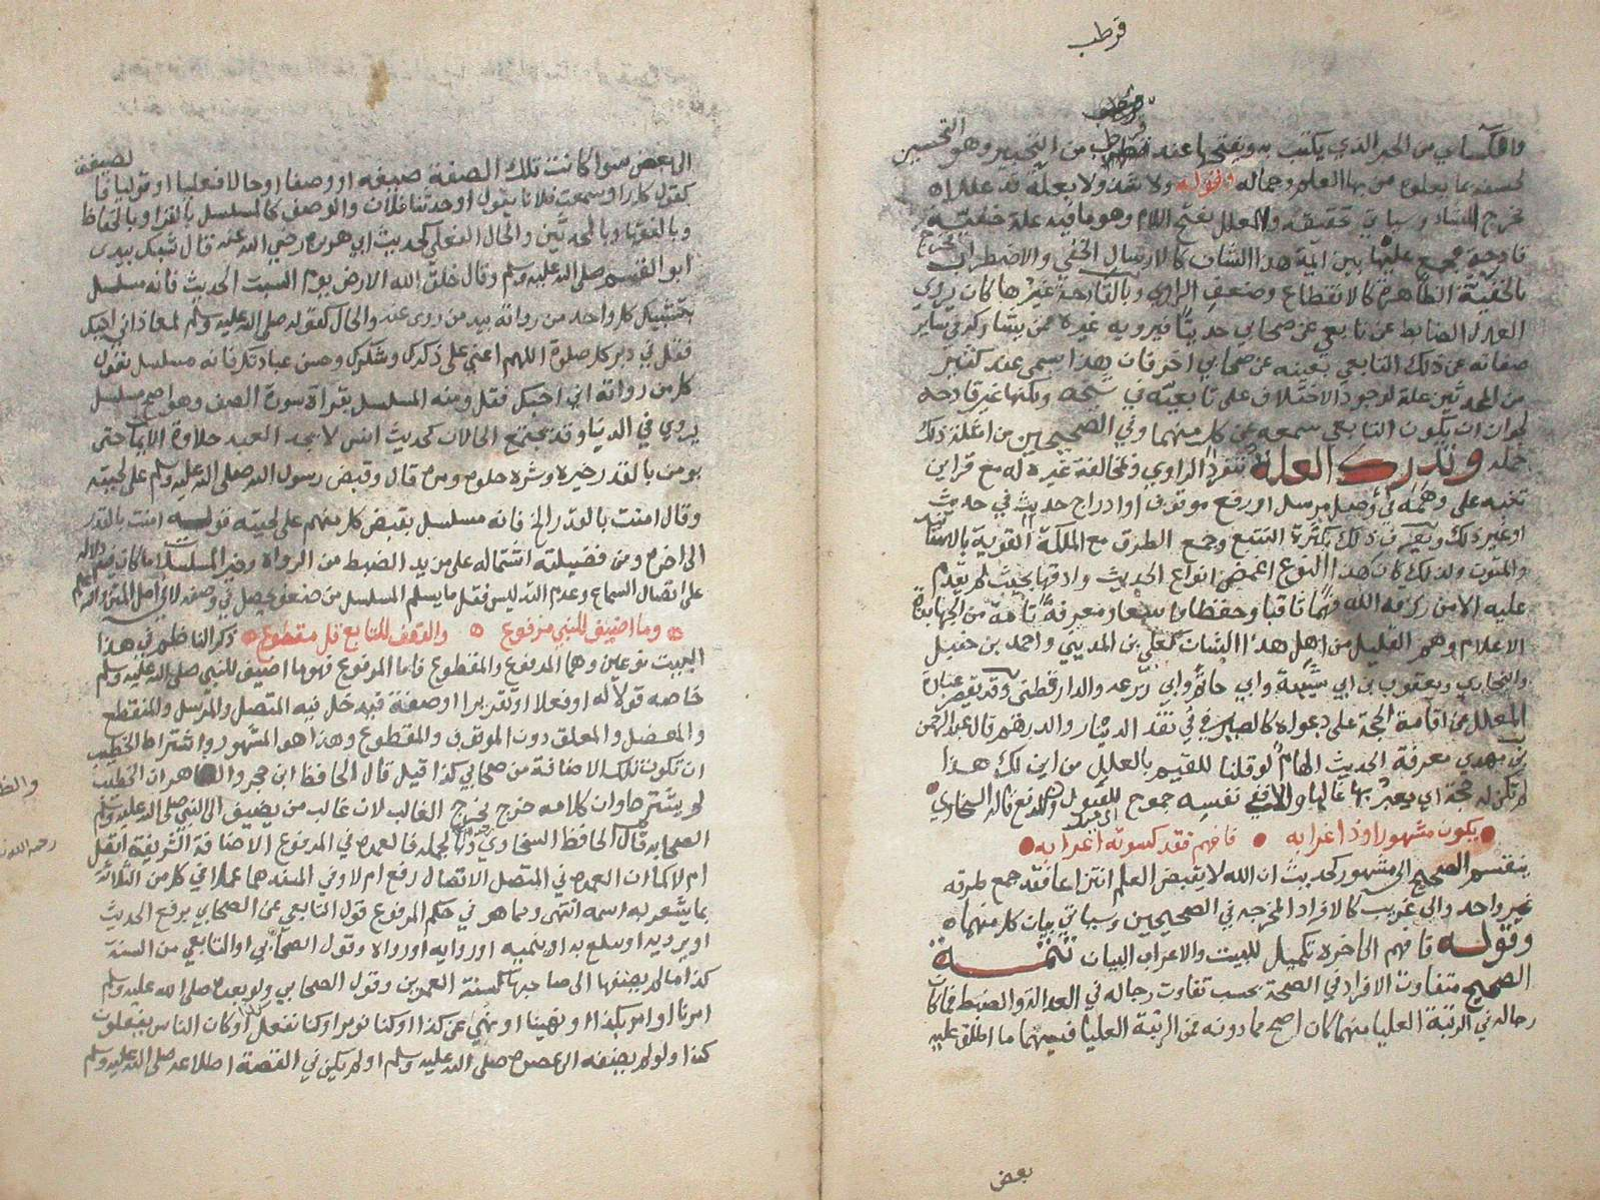 قرطب
من الحبر الذي يكتب به وبفتحها عند قطرب من التحبير وهو التحسين
وقوله ولا شذ ولا يعله قد علم انه
يخرج الشاذ وسياتي تحقيقه والمعلل بفتح اللام وهو ما فيه علة خفية
قادحة مجمع عليها بين ايمة هذا الشان كالارسال الخفي والاضطراب فخرج
بالخفية الظاهرة كالانقطاع وضعف الراوي وبالقادحة غيرها كان يروي
العدل الضابط عن تابعي عن صحابي حديثا فيرويه غيره ممن يشاركه في ساير
صفاته عن ذلك التابعي بعينه عن صحابي اخر فان هذا يسمى عند كثير
من المحدثين علة لوجود الاختلاف على تابعيه في شيخه ولكنها غير قادحة
لجواز ان يكون التابعي سمعه من كل منهما وفي الصحيحين من امثلة ذلك
جملة وتدرك العلة بتفرد الراوي ومخالفة غيره له مع قراين
تنبه على وهمه في وصل مرسل او رفع موقوف او ادراج حديث في حديث
او غير ذلك ويعرف ذلك بكثرة التتبع وجمع الطرق مع الملكة القوية بالاسناد
والمتون ولذلك كان هذا النوع اغمض انواع الحديث وادقها بحيث لم يقدم
عليه الا من رزقه الله فهما ثاقبا وحفظا واسعا ومعرفة تامة من الجهابذة
الاعلام وهم القليل من اهل هذا الشان كعلي بن المديني واحمد بن حنبل
والبخاري ويعقوب بن ابي شيبة وابي حاتم وابي زرعه والدارقطني وقد تقصر عبارة
المعلل عن اقامة الحجة على دعواه كالصيرفي في نقد الدينار والدرهم قال عبد الرحمن
بن مهدي معرفة الحديث الهام لو قلنا للقيم بالعلل من اين لك هذا
لم تكن له حجة اي يعبر بها غالبا والا ففي نفسه حجج للقبول وللدفع قاله السخاوي
يكون مشهورا وذا اغرابه فافهم فقد كسوته اعرابه
ينقسم الصحيح الى مشهور كحديث ان الله لا يقبض العلم انتزاعا فقد جمع طرقه
غير واحد والى غريب كالافراد المخرجه في الصحيحين وسياتي بيان كل منهما
وقوله فافهم الى اخره تكميل للبيت والاعراب البيان تتمة
الصحيح متفاوت الافراد في الصحة بحسب تفاوت رجاله في العدالة والضبط فما كان
رجاله في الرتبة العليا منهما كان اصح مما دونه فمن الرتبة العليا فيهما ما اطلق عليه
بعض
الى بعض سوا كانت تلك الصفة صيغة او وصفا او حالا فعليا او قوليا فالصيغة
كقول كل راو سمعت فلانا يقول او حدثنا فلان والوصف كالمسلسل بالقرا وبالحفاظ
وبالفقها وبالمحدثين والحال الفعلي كحديث ابي هريرة رضي الله عنه قال شبك بيدي
ابو القسم صلى الله عليه وسلم وقال خلق الله الارض يوم السبت الحديث فانه مسلسل
بتشبيك كل واحد من رواته بيد من روى عنه والحال كقوله صلى الله عليه وسلم لمعاذ اني احبك
فقل في دبر كل صلوة اللهم اعني على ذكرك وشكرك وحسن عبادتك فانه مسلسل بقول
كل من رواته اني احبك فقل ومنه المسلسل بقراة سورة الصف وهو اصح مسلسل
يروى في الدنيا وقد يجتمع الحالان كحديث انس لا يجد العبد حلاوة الايمان حتى
يومن بالقدر خيره وشره حلوه ومره قال وقبض رسول الله صلى الله عليه وسلم على لحيته
وقال امنت بالقدر الخ فانه مسلسل بقبض كل منهم على لحيته قوله امنت بالقدر
الى اخره ومن فضيلته اشتماله على مزيد الضبط من الرواة وخير المسلسلات ما كان فيه دلالة
على اتصال السماع وعدم التدليس فقل ما يسلم المسلسل من ضعف يحصل في وصفه لا في اصل المتن والله اعلم
وما اضيف للنبي مرفوع والوقف للتابع قل مقطوع ذكر الناظم في هذا
البيت نوعين وهما المرفوع والمقطوع فاما المرفوع فهو ما اضيف للنبي صلى الله عليه وسلم
خاصه قولا له او فعلا او تقريرا او صفة فيدخل فيه المتصل والمرسل والمنقطع
والمعضل والمعلق دون الموقوف والمقطوع وهذا هو المشهور واشترط الخطيب
ان تكون تلك الاضافة من صحابي كذا قيل قال الحافظ ابن حجر والظاهر ان الخطيب
لم يشترطها وان كلامه خرج مخرج الغالب لان غالب من يضيف الى النبي صلى الله عليه وسلم
الصحابة قال الحافظ السخاوي وبالجملة فالعمدة في المرفوع الاضافة الشريفة اتصل
ام لا كما ان العمدة في المتصل الاتصال رفع ام لا وفي المسند هما عملا في كل من الثلاثة
بما يشعر به اسمه انتهى ومما هو في حكم المرفوع قول التابعي عن الصحابي يرفع الحديث
او يرويه او يبلغ به او ينميه او روايه او رواه وقول الصحابي او التابعي من السنة
كذا ما لم يضفها الى صاحبها كسنة العمرين وقول الصحابي ولو بعده صلى الله عليه وسلم
امرنا او امر بكذا او نهينا او نهي عن كذا او كنا نومر او كنا نفعل او كان الناس يفعلون
كذا ولو لم يضفه الى عصره صلى الله عليه وسلم او لم يكن في القصة اطلاعه صلى الله عليه وسلم